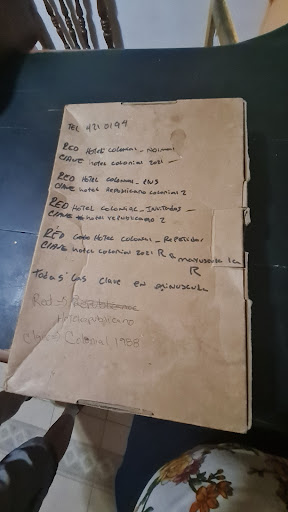 TEL 421 0194
RED HOTEL COLONIAL -
CLAVE hotel colonial 2021 -
RED HOTEL COLONIAL -
CLAVE hotel Republicano colonial 2
RED HOTEL COLONIAL - INVITADOS -
CLAVE hotel republicano 2
RED HOTEL COLONIAL - Repetidor
CLAVE hotel colonial 2021 R R mayuscula la
R
Todas las clave en minuscula
Red =
Hotelrepublicano
Clave = Colonial 1988